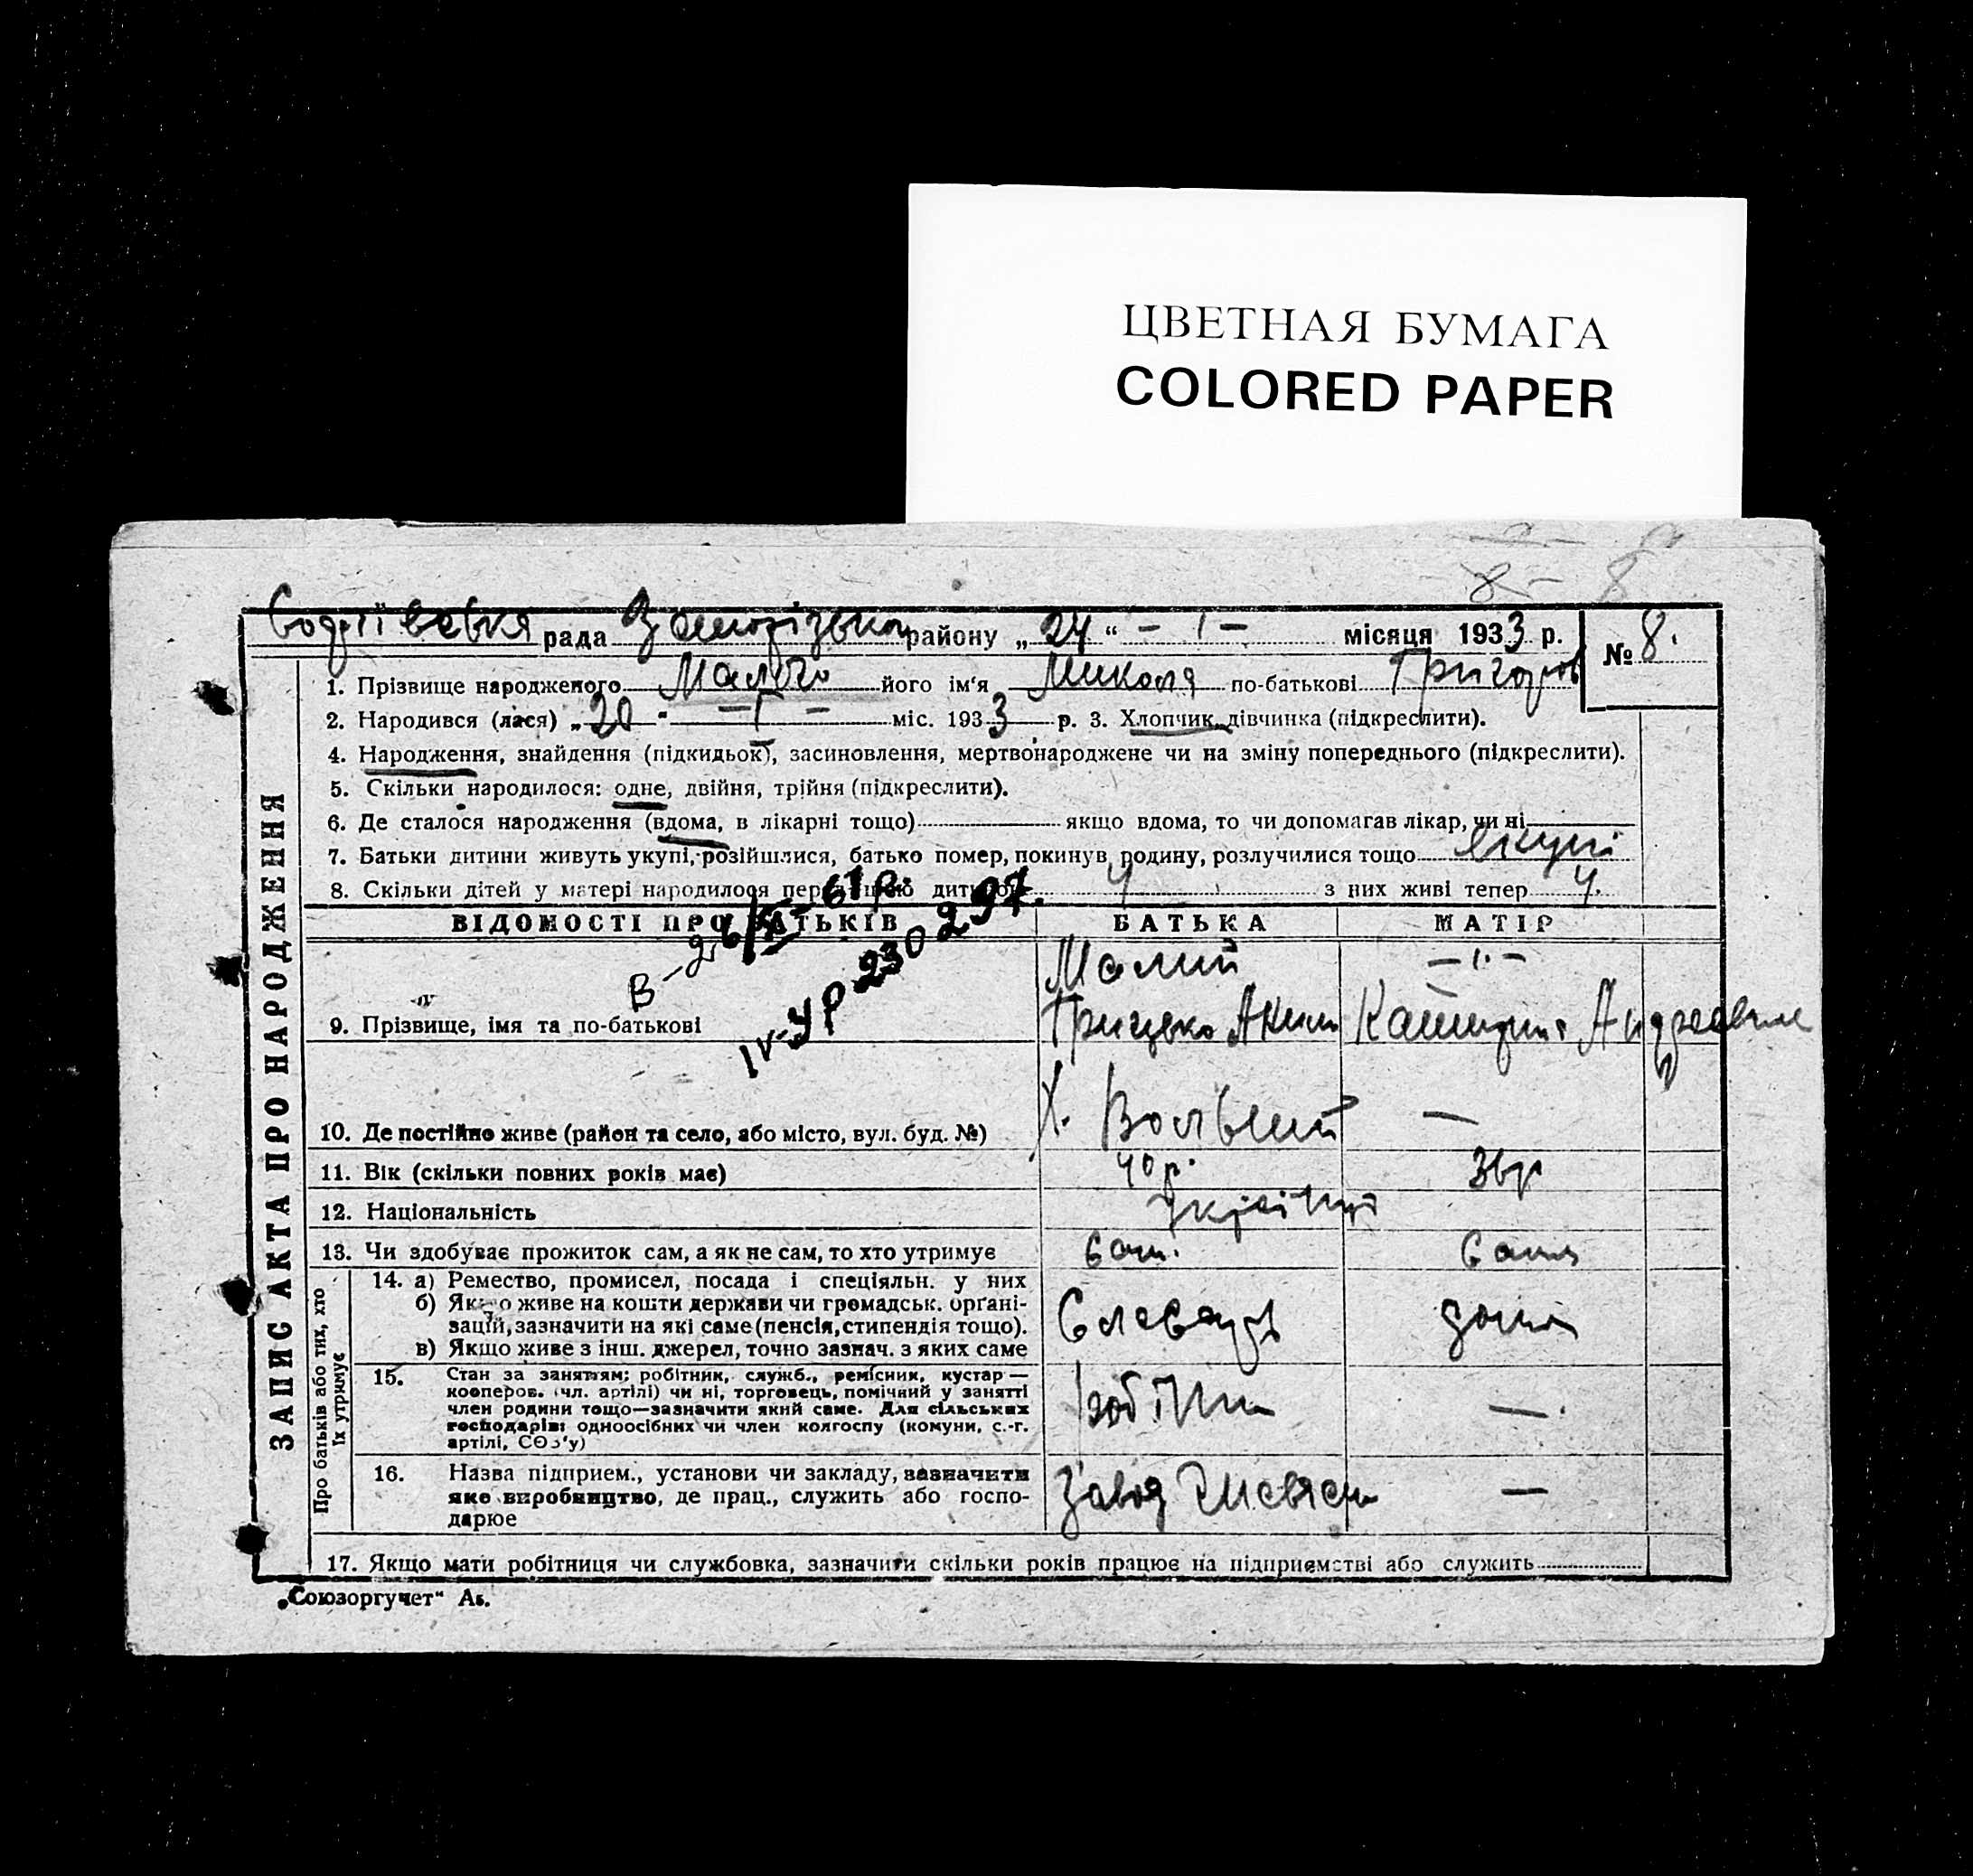 ЦВЕТНАЯ БУМАГА
COLORED PAPER
8 8
рада районy „24“ – I – місяця 1933 р. № 8.
1. Прізвище народженого Малого його ім'я Микола по-батькові Григоров
2. Народився (лася) „20 – I – міс. 1933 р. 3. Хлопчик, дівчинка (підкреслити).
4. Народження, знайдення (підкидьок), засиновлення, мертвонароджене чи на зміну попереднього (підкреслити).
5. Скільки народилося: одне, двійня, трійня (підкреслити).
6. Де сталося народження (вдома, в лікарні тощо) якщо вдома, то чи допомагав лікар, чи ні
7. Батьки дитини живуть укупі, розійшлися, батько помер, покинув родину, розлучилися тощо
8. Скільки дітей у матері народилося перед цією дитиною 4 з них живі тепер 4.
ВІДОМОСТІ ПРО БАТЬКІВ БАТЬКА МАТІР
61 р.
IV-УР 230297.
9. Прізвище, імя та по-батькові Малий Грицько Аким –ı·– Катерина Андреевна
10. Де постійно живе (район та село, або місто, вул. буд. №) Х. Вольний —
11. Вік (скільки повних років має) 40 р. 36р
12. Національність Україці
13. Чи здобуває прожиток сам, а як не сам, то хто утримує
Про батьків або тих, хто їх утримує
14. а) Ремество, промисел, посада і спеціяльн. у них
б) Якщо живе на кошти держави чи громадськ. органі-
зацій, зазначити на які саме (пенсія, стипендія тощо).
в) Якщо живе з інш. джерел, точно зазнач. з яких саме
Слесарь дома
15. Стан за заняттям; робітник, служб., ремісник, кустар —
кооперов. (чл. артілі) чи ні, торговець, помічний у занятті
член родини тощо—зазначити який саме. Для сільських
господарів: одноосібних чи член колгоспу (комуни, с.-г.
артілі, СОЗ'у)
Робітник —.
16. Назва підприєм., установи чи закладу, зазначити
яке виробництво, де прац., служить або госпо-
дарює
Завод —
17. Якщо мати робітниця чи службовка, зазначити скільки років працює на підприємстві або служить
ЗАПИС АКТА ПРО НАРОДЖЕННЯ
„Союзоргучет“